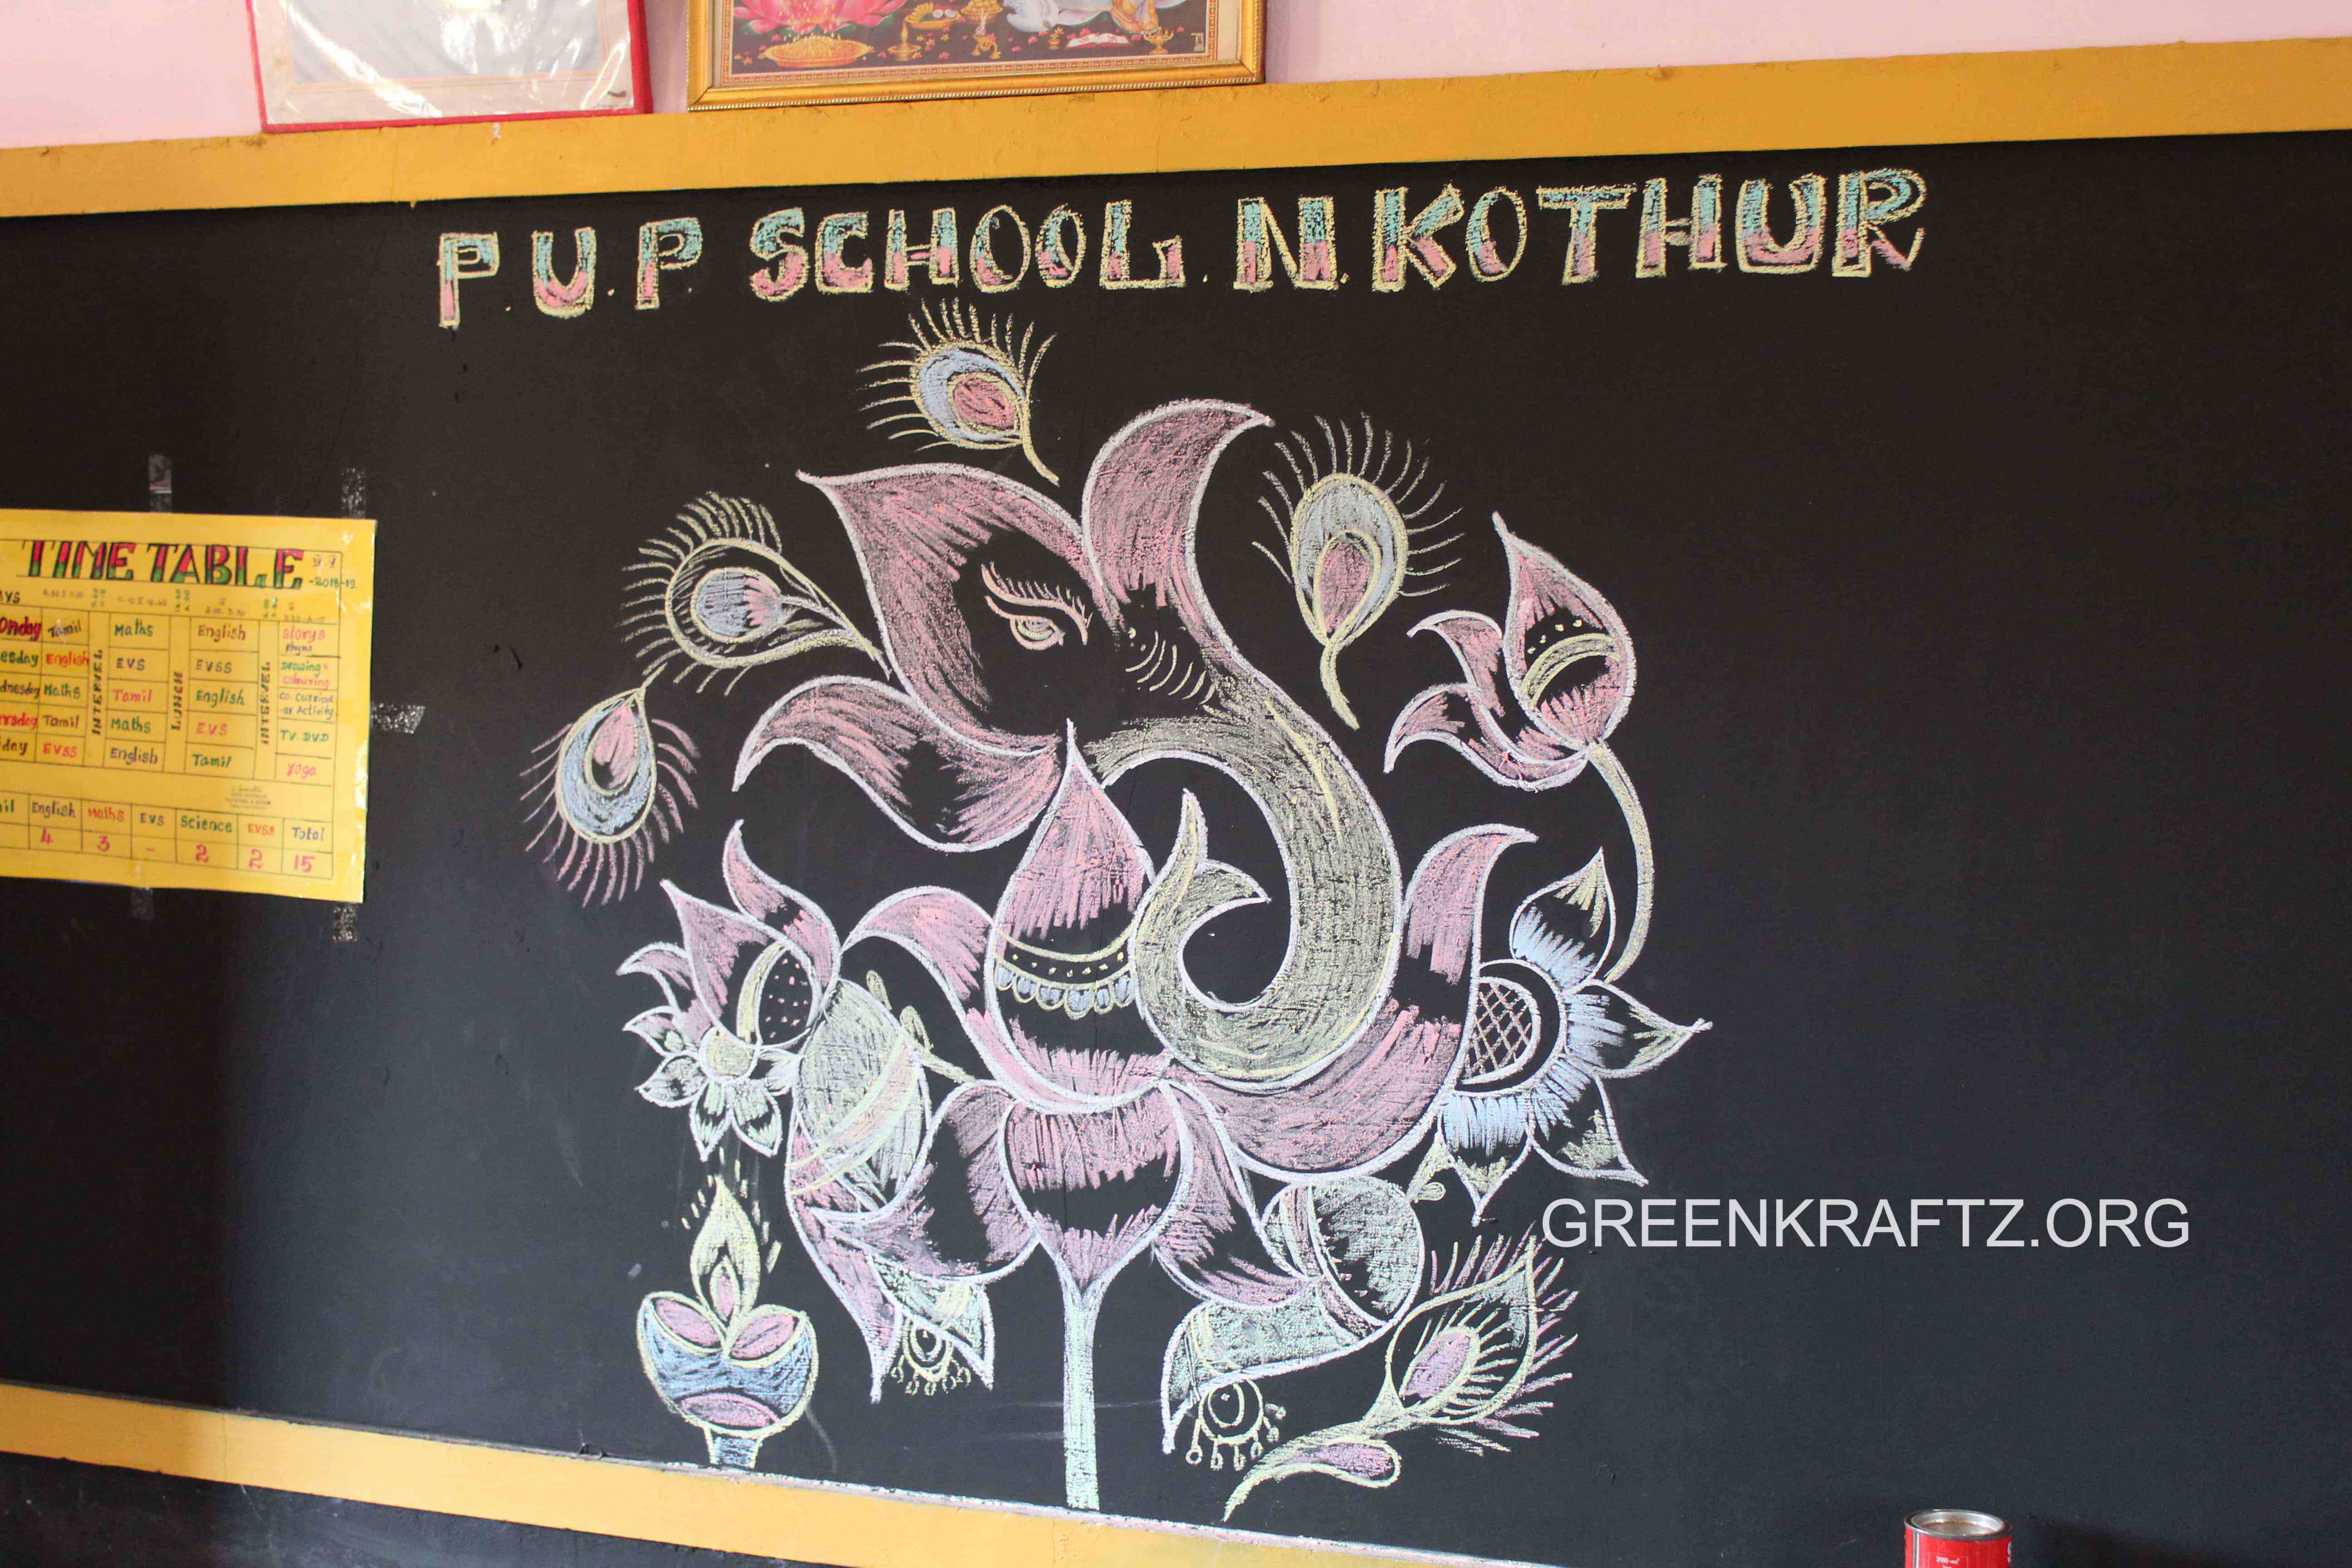 P.U.P SCHOOL. N. KOTHUR
TIME TABLE
-2018-19
Monday Tamil Maths English Storys
Rhyms
Tuesday English EVS EVSS Drawing &
colouring
Wednesday Maths Tamil English Co. Curricul
-ar Activity
Thursday Tamil Maths EVS TV. DVD
Friday EVSS English Tamil Yoga
INTERVEL
LUNCH
INTERVEL
English Maths EVS Science EVSS Total
4 3 - 2 2 15
GREENKRAFTZ.ORG